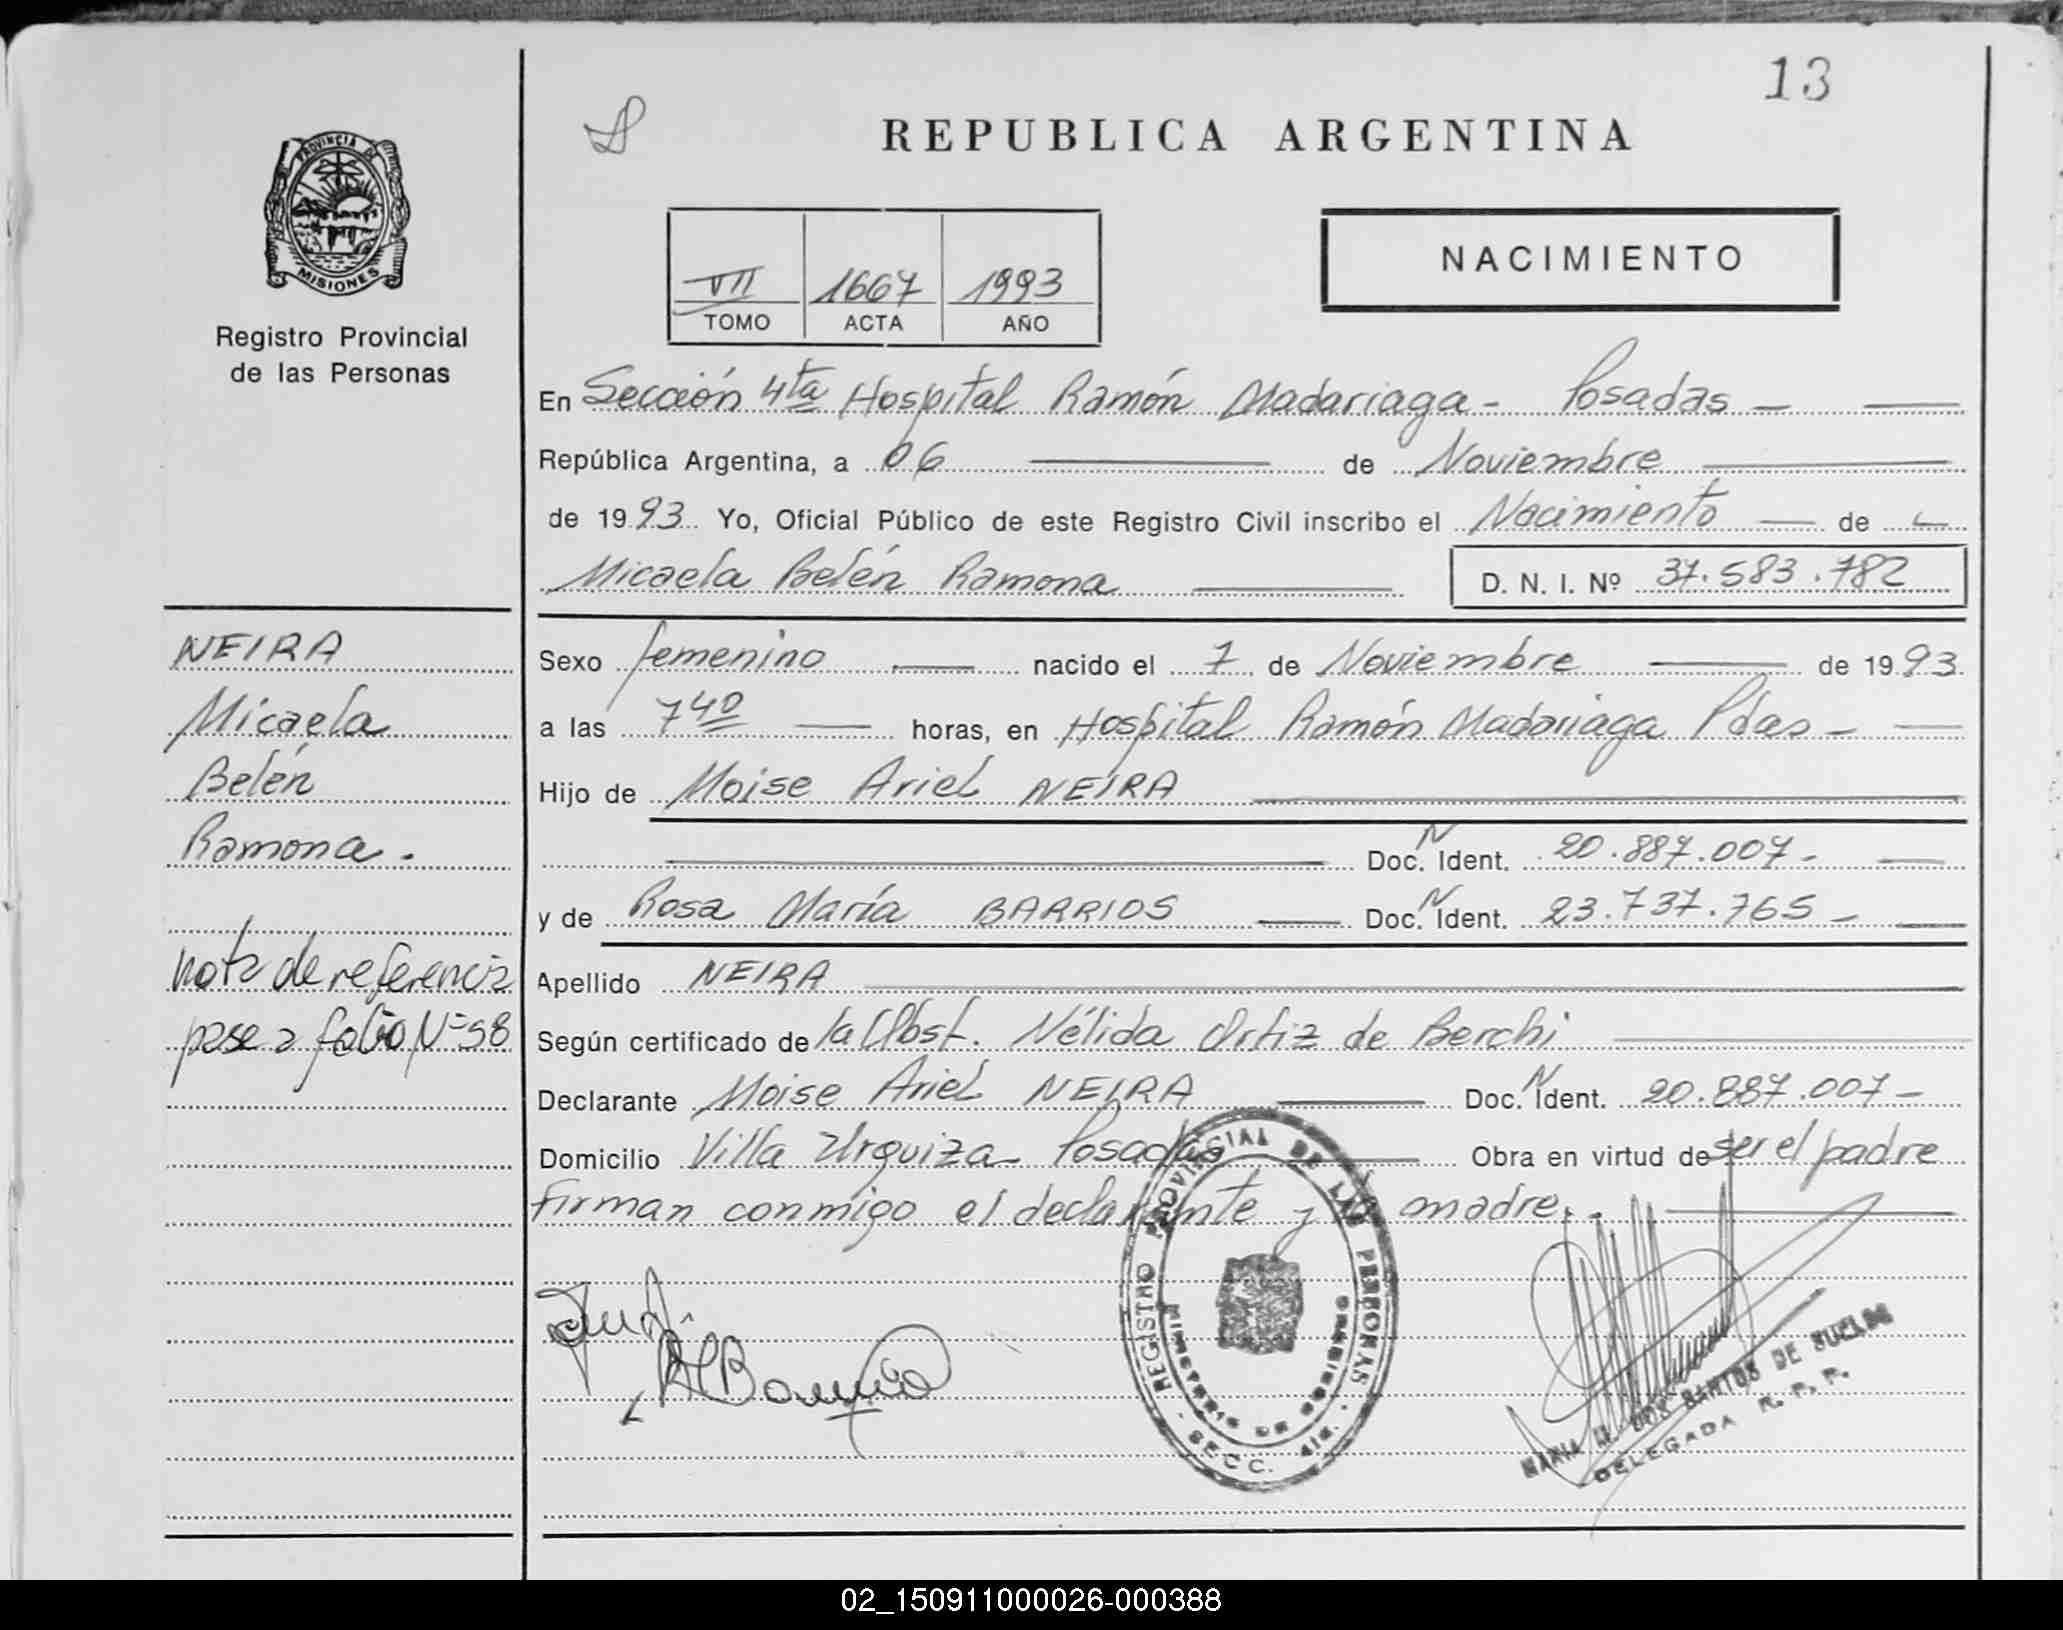 13
REPUBLICA ARGENTINA
PROVINCIA DE
MISIONES
Registro Provincial
de las Personas
NACIMIENTO
VII 1667 1993
TOMO ACTA AÑO
En Sección 4ta Hospital Ramón Madariaga - Posadas -
República Argentina, a 06 de Noviembre
de 1993 Yo, Oficial Público de este Registro Civil inscribo el Nacimiento de
Micaela Belén Ramona D. N. I. Nº 37.583.782
Sexo femenino nacido el 7 de Noviembre de 1993
a las 7 40 horas, en Hospital Ramón Madariaga Pdas -
Hijo de Moise Ariel NEIRA
Doc. N Ident. 20.887.007 -
y de Rosa María BARRIOS Doc. N Ident. 23.737.765 -
Apellido NEIRA
Según certificado de la Obst. Nélida Ortiz de Berchi
Declarante Moise Ariel NEIRA Doc. N Ident. 20.887.007 -
Domicilio Villa Urquiza Posadas Obra en virtud de ser el padre
firman conmigo el declarante y la madre.
NEIRA
Micaela
Belén
Ramona.
nota de referencia
pase a folio Nº 58
REGISTRO PROVINCIAL DE LAS PERSONAS
MINISTERIO DE GOBIERNO
SECC. 4ta.
MARIA DOS SANTOS DE
DELEGADA R. P. P.
02_150911000026-000388